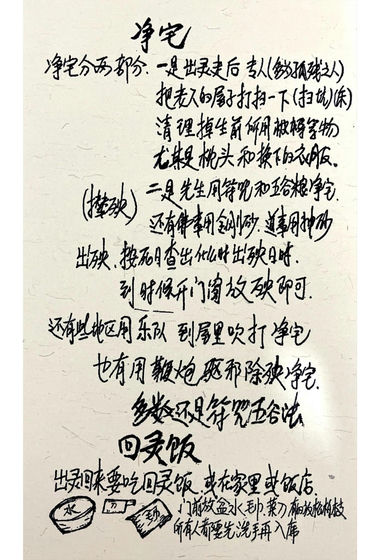 净宅
净宅分两部分.一是出灵走后专人(多为孤残之人)
把老人的屋子打扫一下(扫炕)(床)
清理掉生前所用被褥等物
尤其是枕头和换下的衣服。
二是先生用符咒和五谷粮净宅.
(撵殃)
还有佛事用金刚砂.道事用神砂
出殃.按死日查出化时出殃日时.
到时候开门窗放殃即可.
还有些地区用乐队到屋里吹打净宅
也有用鞭炮驱邪除殃净宅.
多数还是符咒五谷法
回灵饭
出灵回来要吃回灵饭.或在家里或饭店.
门前放盆水.毛巾.菜刀
水 刀
所有人都要先洗手再入席